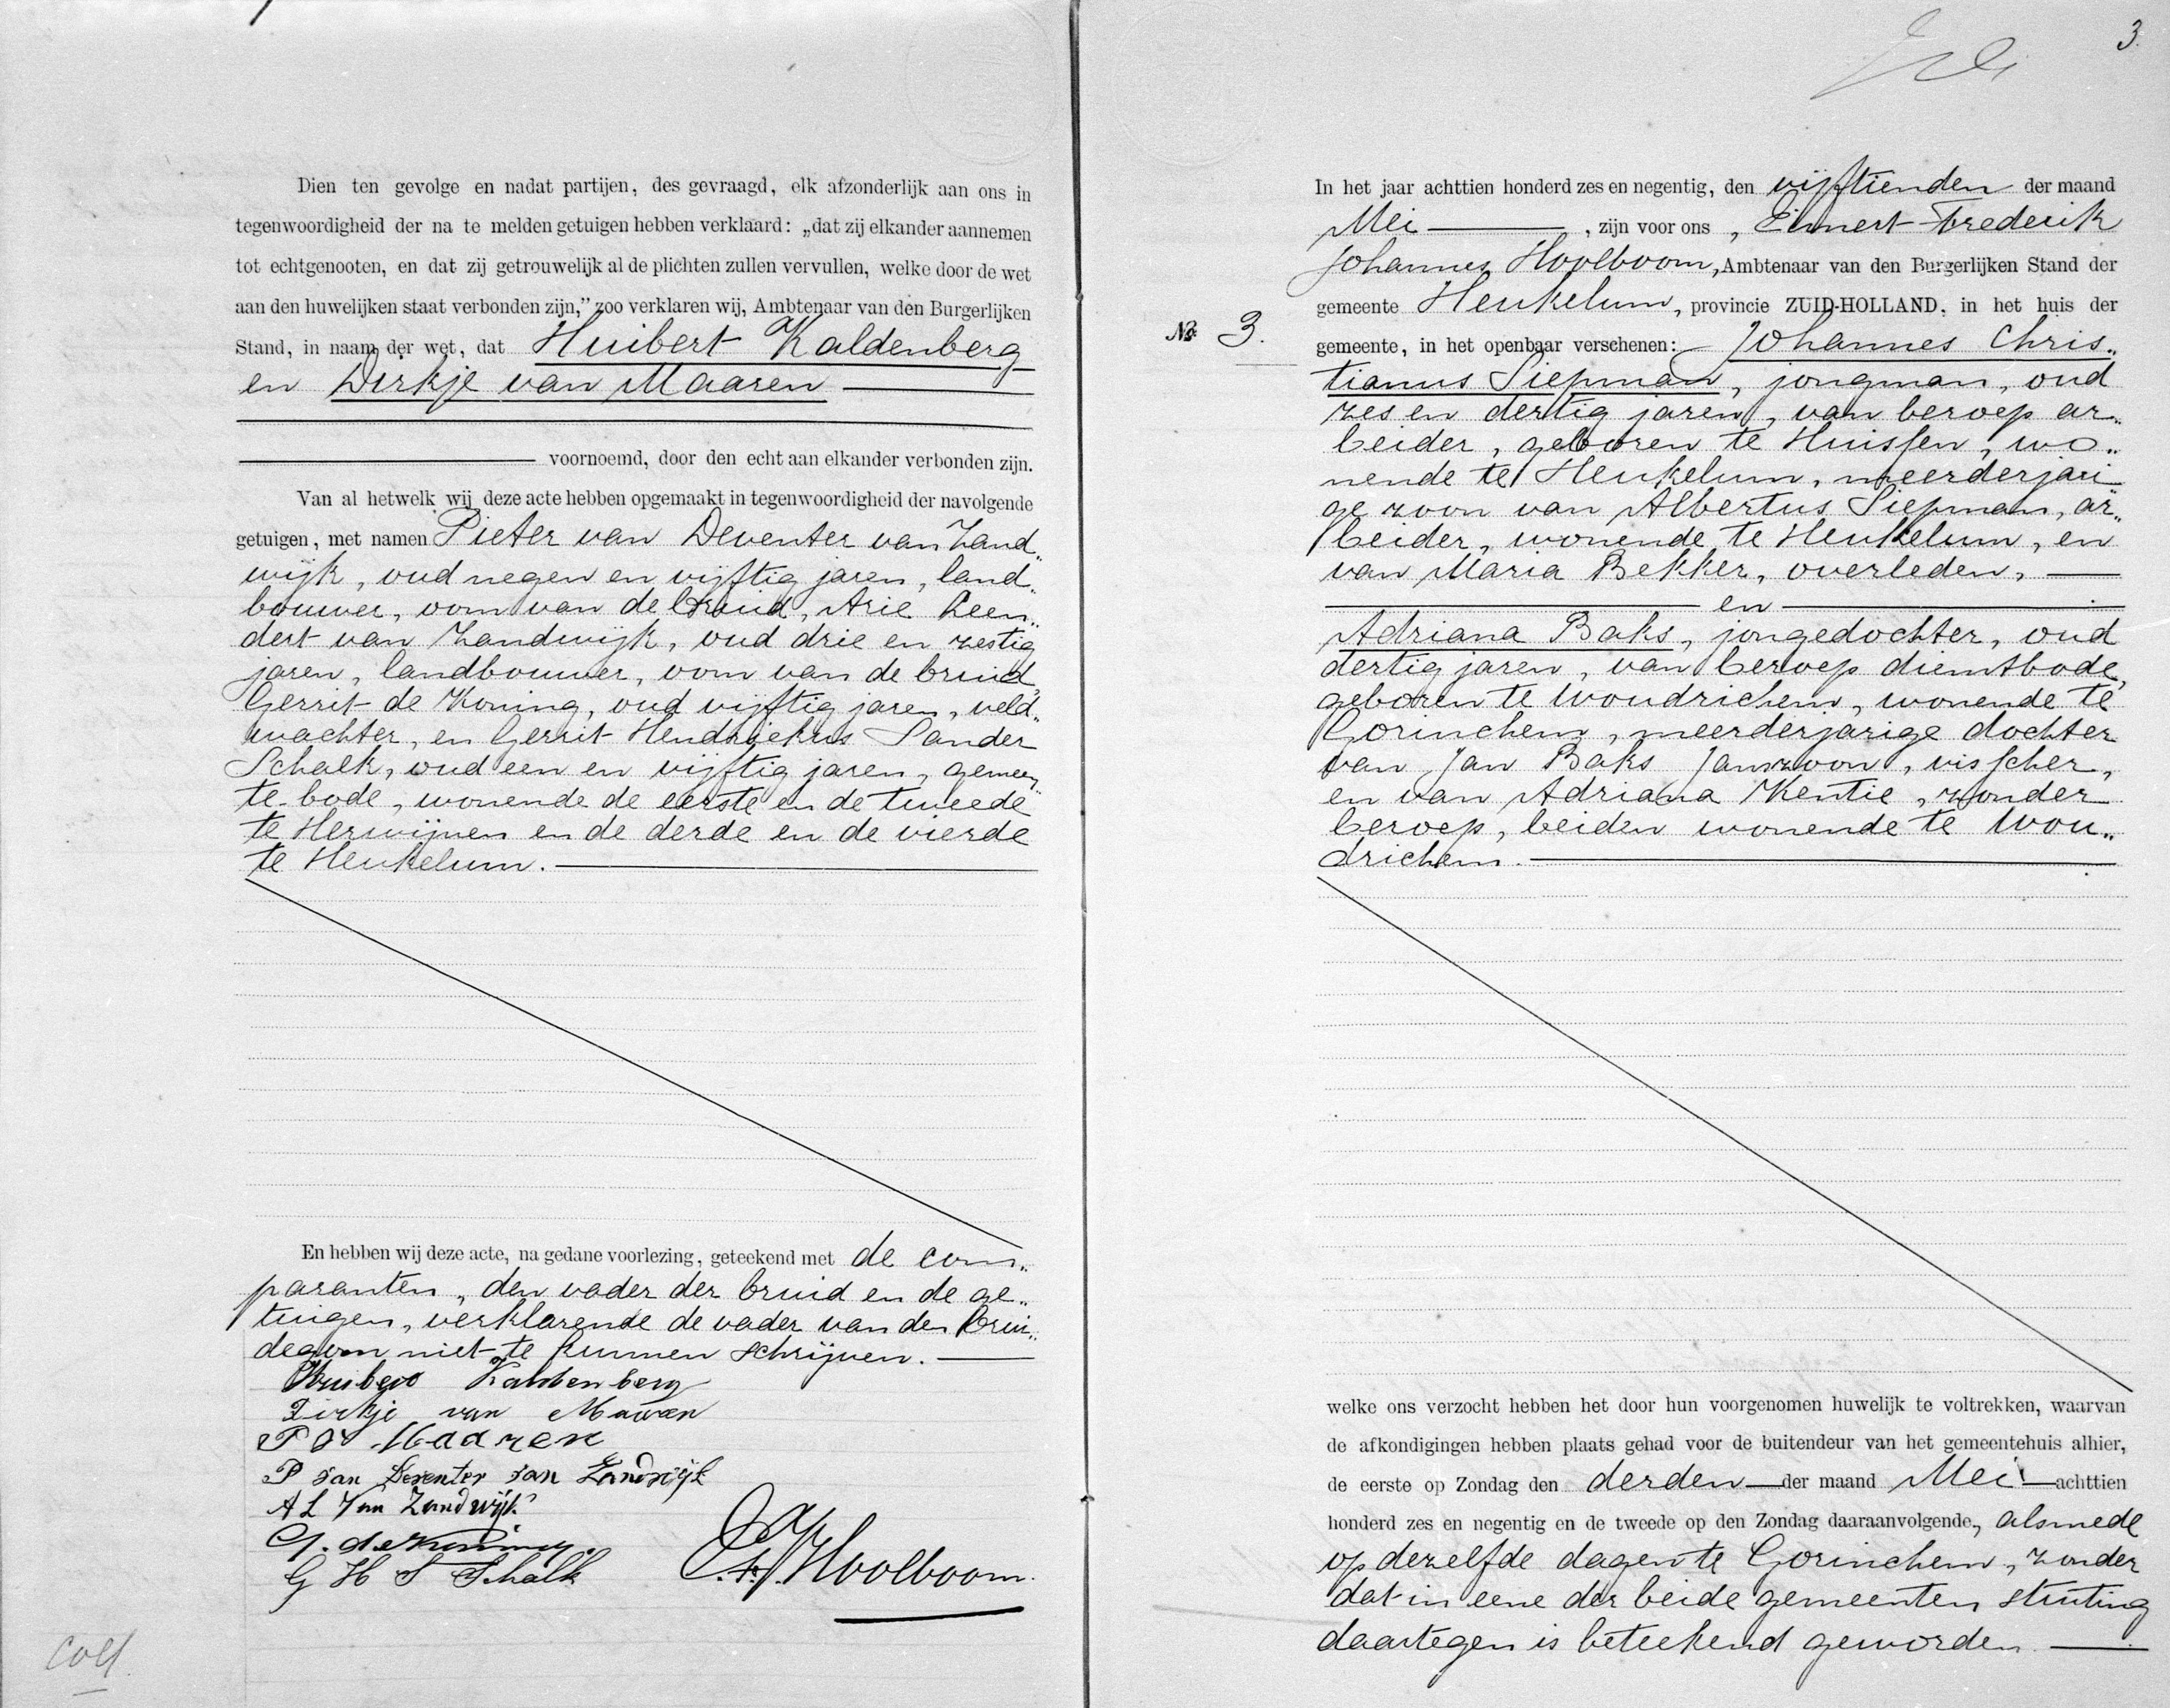 Dien ten gevolge en nadat partijen, des gevraagd, elk afzonderlijk aan ons in
tegenwoordigheid der na te melden getuigen hebben verklaard: „dat zij elkander aannemen
tot echtgenooten, en dat zij getrouwelijk al de plichten zullen vervullen, welke door de wet
aan den huwelijken staat verbonden zijn,” zoo verklaren wij, Ambtenaar van den Burgerlijken
Stand, in naam der wet, dat Huibert Kaldenberg
en Dirkje van Maaren
voornoemd, door den echt aan elkander verbonden zijn.
Van al hetwelk wij deze acte hebben opgemaakt in tegenwoordigheid der navolgende
getuigen, met namen Pieter van Deventer van Zand„
wijk, oud negen en vijftig jaren, land„
bouwer, oom van de bruid, Arie Leen„
dert van Zandwijk, oud drie en zestig
jaren, landbouwer, oom van de bruid,
Gerrit de Koning, oud vijftig jaren, veld„
wachter, en Gerrit Hendriekus Sander
Schalk, oud een en vijftig jaren, gemeen„
te-bode, wonende de eerste en de tweede
te Herwijnen en de derde en de vierde
te Heukelum.
En hebben wij deze acte, na gedane voorlezing, geteekend met de com„
paranten, den vader der bruid en de ge„
tuigen, verklarende de vader van den brui„
degom niet te kunnen schrijven.
Kaldenberg
Dirkje van Maaren
P v Maaren
P van Deventer van Zandwijk
A L Van Zandwijk
G. de Koning.
G H S Schalk
Hoolboom.
coll.
3.
In het jaar achttien honderd zes en negentig, den vijftienden der maand
Mei, zijn voor ons, Eimert Frederik
Johannes Hoolboom, Ambtenaar van den Burgerlijken Stand der
gemeente Heukelum, provincie ZUID-HOLLAND, in het huis der
No. 3. gemeente, in het openbaar verschenen: Johannes Chris„
tianus Siepman, jongman, oud
zes en dertig jaren, van beroep ar„
beider, geboren te Huissen, wo„
nende te Heukelum, meerderjari„
ge zoon van Albertus Siepman, ar„
beider, wonende te Heukelum, en
van Maria Bekker, overleden,
en
Adriana Baks, jongedochter, oud
dertig jaren, van beroep dienstbode,
geboren te Woudrichem, wonende te
Gorinchem, meerderjarige dochter
van Jan Baks Janszoon, visscher,
en van Adriana Kentie, zonder
beroep, beiden wonende te Wou„
drichem.
welke ons verzocht hebben het door hun voorgenomen huwelijk te voltrekken, waarvan
de afkondigingen hebben plaats gehad voor de buitendeur van het gemeentehuis alhier,
de eerste op Zondag den derden der maand Mei achttien
honderd zes en negentig en de tweede op den Zondag daaraanvolgende, alsmede
op dezelfde dagen te Gorinchem, zonder
dat in eene der beide gemeenten stuiting
daartegen is beteekend geworden.